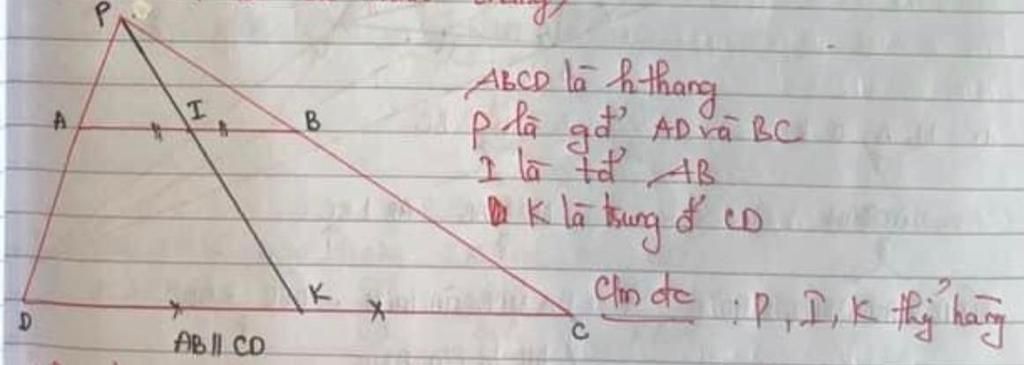 thẳng)
P
A
I
B
D
K
C
AB // CD
ABCD là hthang
P là gđ' AD và BC
I là tđ' AB
K là trung đ' CD
Cm đc : P, I, K thẳng hàng